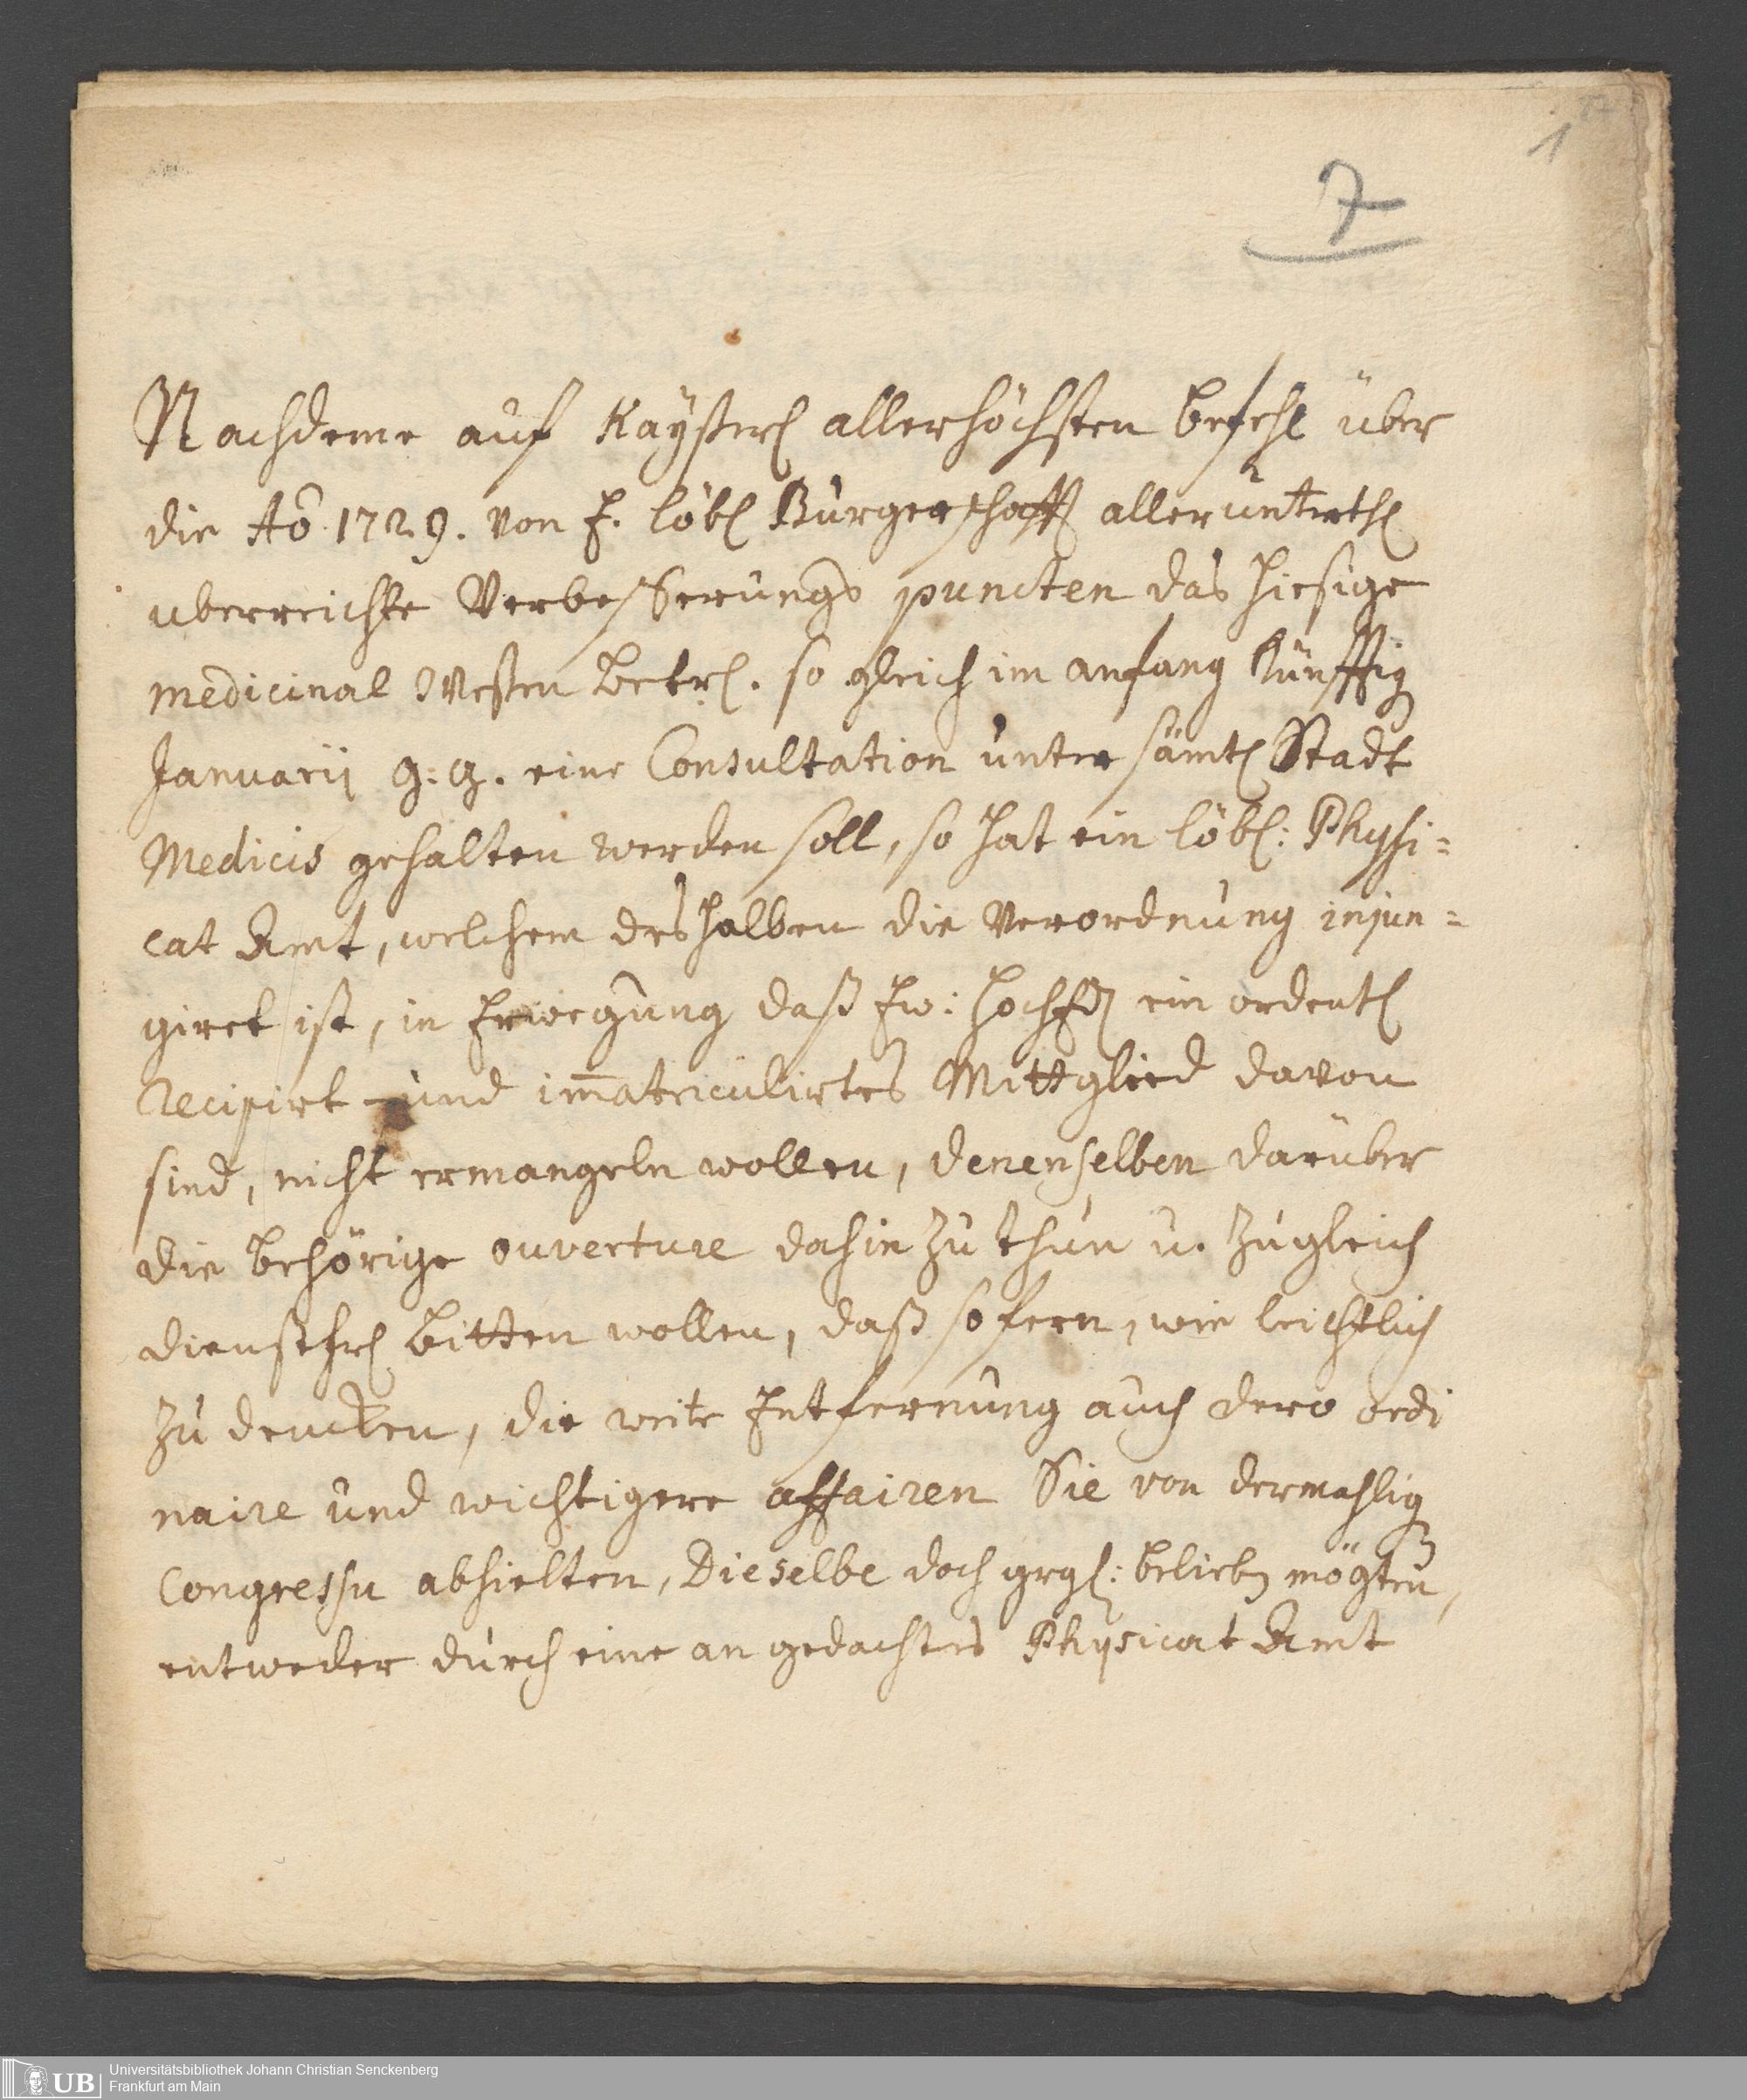 1
7
Nachdeme auf Kayßerl allerhöchsten befehl über
die Aō 1729. von E. löbl Bürgerschafft allerunterthl
uberreichte Verbeßerungs puncten das hiesige
medicinal Weßen betrl. so gleich im anfang Künfftig
Januarii g. G. eine Consultation unter sämtl Stadt
Medicis gehalten werden soll, so hat ein löbl: Physi=
cat Amt, welchem deshalben die Verordnung injun=
giret ist, in Erwegung daß Ew: HochEd ein ordentl
recipirt und im̄atriculirtes Mittglied davon
sind, nicht ermangeln wollen, denenselben darüber
die behörige ouverture dahin zu thun u. zugleich
dienstfrl bitten wollen, daß sofern, wie leichtlich
zu dencken, die weite Entfernung auch dero ordi
naire und wichtigere affairen Sie von dermahlig
Congressu abhielten, Dieselbe doch grgl: belieben mögten,
entweder durch eine an gedachtes Physicat Amt
UB
Universitätsbibliothek Johann Christian Senckenberg
Frankfurt am Main